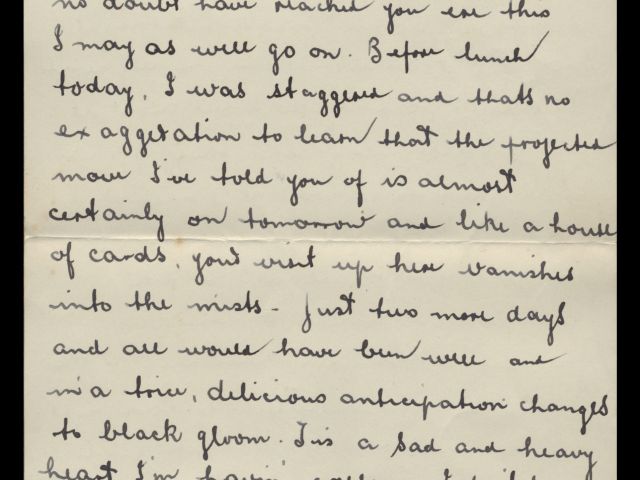 no doubt have reached you ere this
I may as well go on. Before lunch
today, I was staggered and thats no
exaggeration to learn that the projected
move I've told you of is almost
certainly on tomorrow and like a house
of cards, your visit up here vanishes
into the mists - Just two more days
and all would have been well and
in a trice, delicious anticipation changes
to black gloom. Tis a sad and heavy
heart I'm having